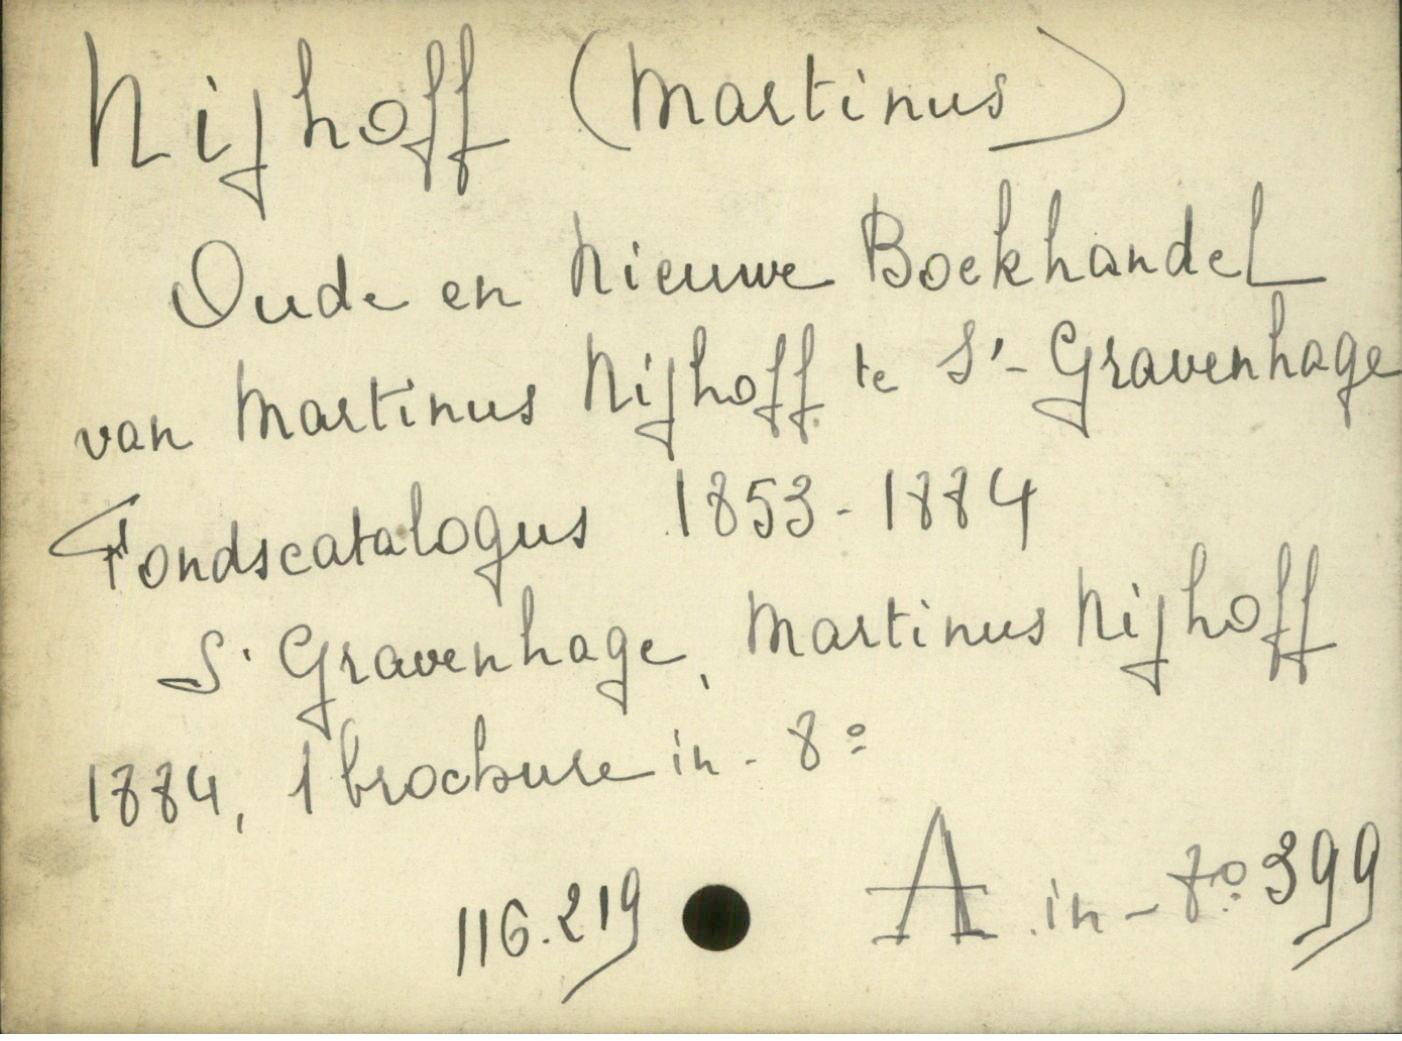 Nijhoff (Martinus)
Oude en Nieuwe Boekhandel
van Martinus Nijhoff te S'-Gravenhage
Fondscatalogus 1853-1884
S' Gravenhage, Martinus Nijhoff
1884, 1 brochure in-8º
116.219 A in-8º 399